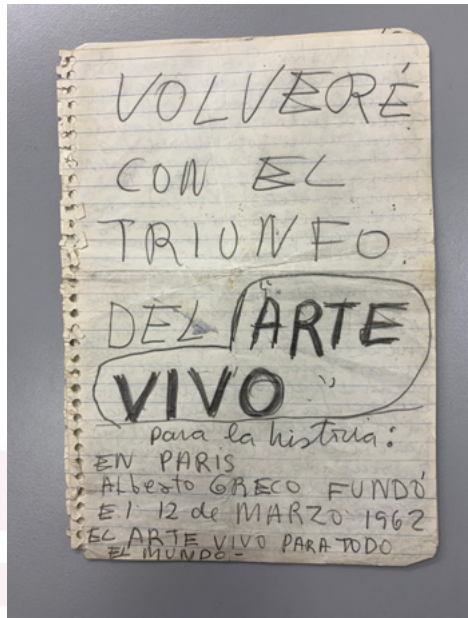 VOLVERÉ
CON EL
TRIUNFO
DEL "ARTE
VIVO"
para la histria:
EN PARIS
ALbesto GRECO FUNDÓ
El 12 de MARZO 1962
EL ARTE VIVO PARA TODO
EL MUNDO-